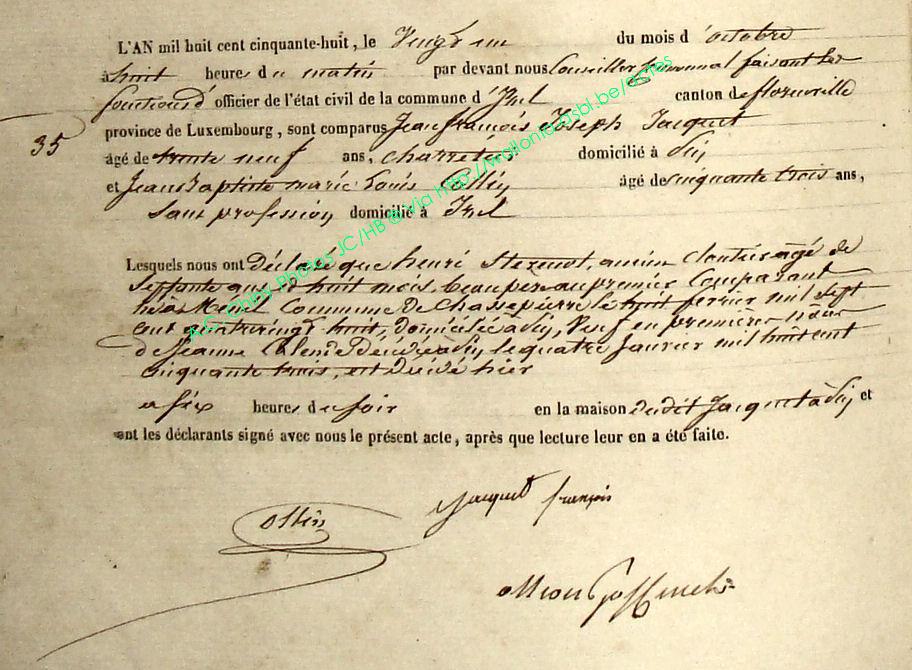 L'AN mil huit cent cinquante-huit, le Vingt un du mois d'octobre
à huit heures du matin par devant nous Conseiller Communal faisant les
fonctions d'officier de l'état civil de la commune d'Izel canton de florenville
35
province de Luxembourg, sont comparus Jean françois Joseph Jacquet
âgé de trente neuf ans, charretier domicilié à
et Jean Baptiste marie Louis Ollin âgé de cinquante trois ans,
sans profession domicilié à Izel
Lesquels nous ont Déclaré que henri, ancien âgé de
Septante ans et huit mois, beau pere au premier Comparant
né à Commune de Chassepierre le huit fevrier mil sept
cent quatrevingt huit, domicilié à, Veuf en premières noces
de Jeanne Décédée à, le quatre Janvier mil huit cent
cinquante trois, est Décédé hier
a six heures du soir en la maison dudit Jacquet à et
ont les déclarants signé avec nous le présent acte, après que lecture leur en a été faite.
Jacquet françois
Ollin